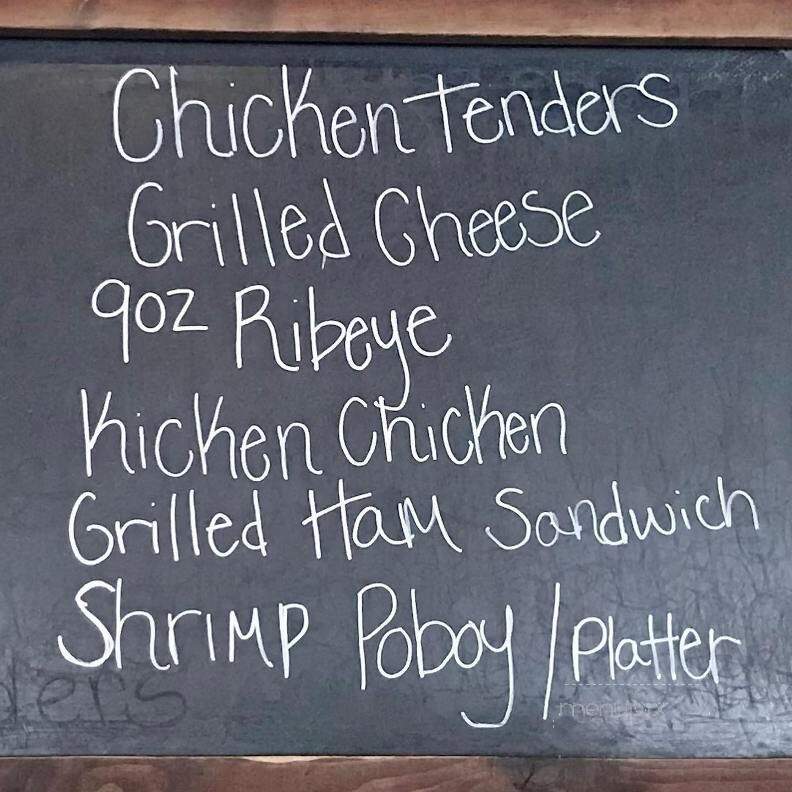 Chicken Tenders
Grilled Cheese
9oz Ribeye
Kicken Chicken
Grilled Ham Sandwich
Shrimp Poboy / Platter